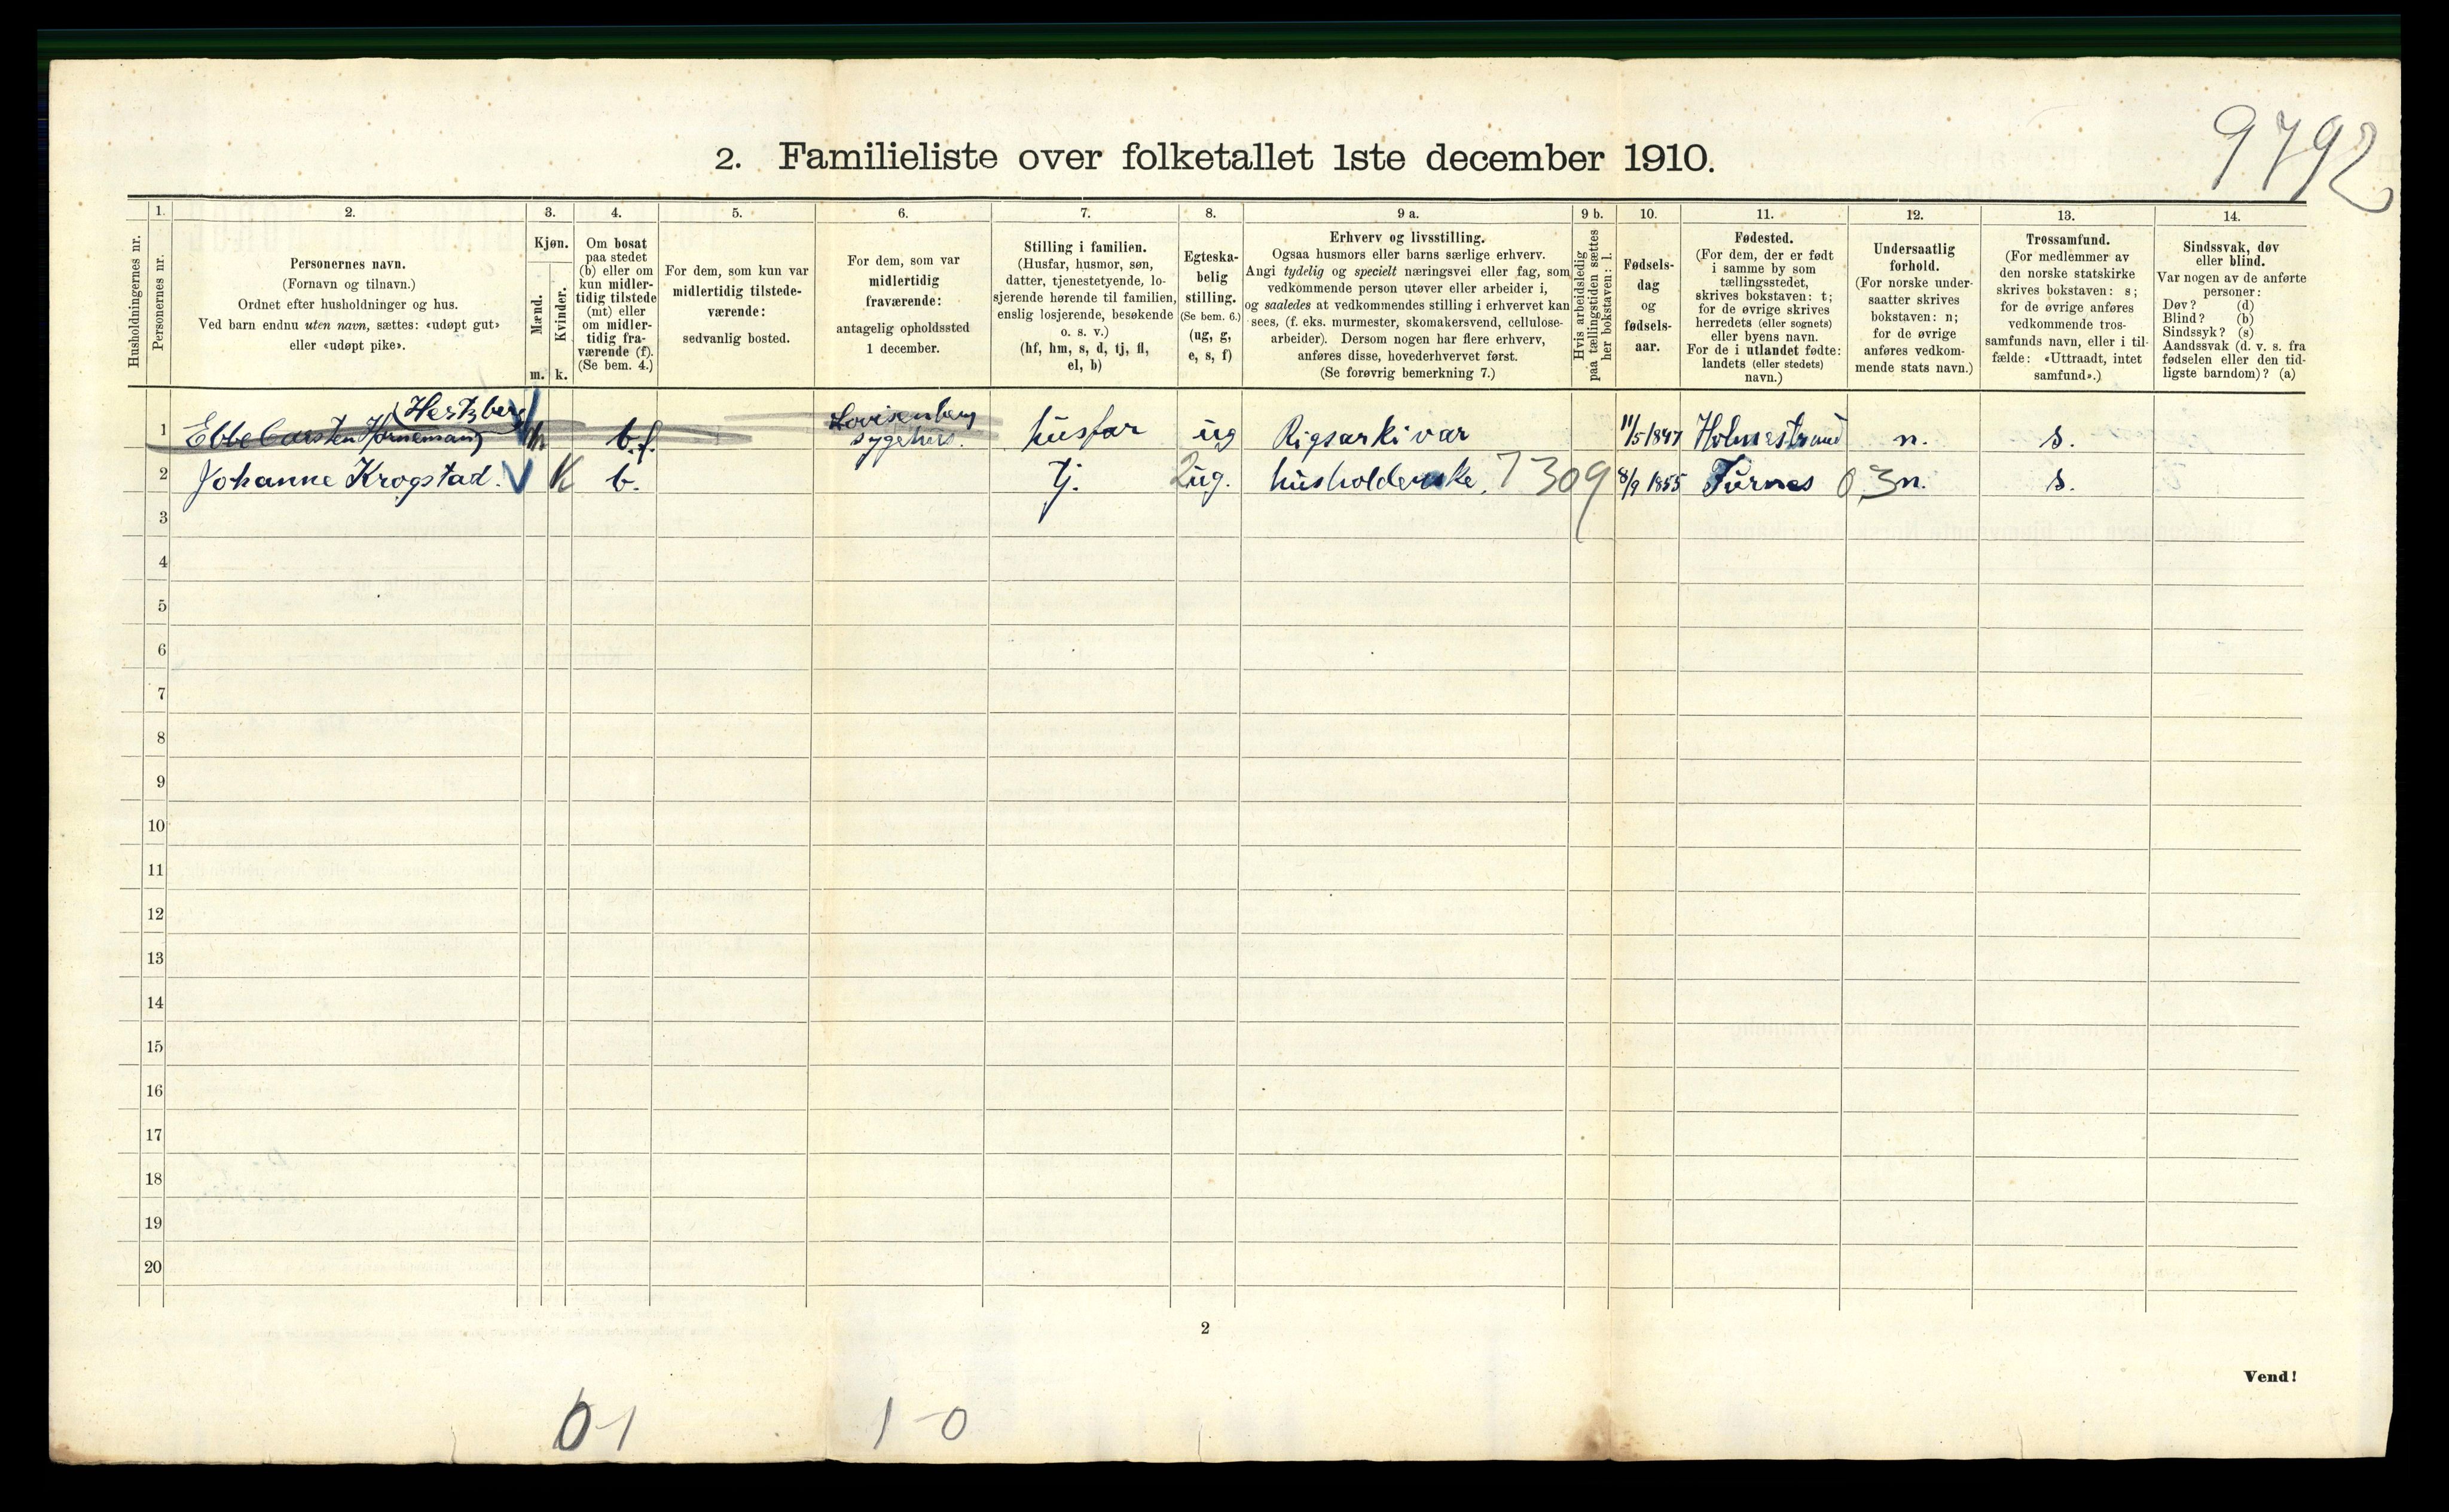 9792
2. Familieliste over folketallet 1ste december 1910.
Husholdningernes nr.
1.
Personernes nr.
2.
Personernes navn.
(Fornavn og tilnavn.)
Ordnet efter husholdninger og hus.
Ved barn endnu uten navn, sættes: «udøpt gut»
eller «udøpt pike».
3.
Kjøn.
Mænd.
m.
Kvinder.
k.
4.
Om bosat
paa stedet
(b) eller om
kun midler-
tidig tilstede
(mt) eller
om midler-
tidig fra-
værende (f).
(Se bem. 4.)
5.
For dem, som kun var
midlertidig tilstede-
værende:
sedvanlig bosted.
6.
For dem, som var
midlertidig
fraværende:
antagelig opholdssted
1 december.
7.
Stilling i familien.
(Husfar, husmor, søn,
datter, tjenestetyende, lo-
sjerende hørende til familien,
enslig losjerende, besøkende
o. s. v.)
(hf, hm, s, d, tj, fl,
el, b)
8.
Egteska-
belig
stilling.
(Se bem. 6.)
(ug, g,
e, s, f)
9 a.
Erhverv og livsstilling.
Ogsaa husmors eller barns særlige erhverv.
Angi tydelig og specielt næringsvei eller fag, som
vedkommende person utøver eller arbeider i,
og saaledes at vedkommendes stilling i erhvervet kan
sees, (f. eks. murmester, skomakersvend, cellulose-
arbeider). Dersom nogen har flere erhverv,
anføres disse, hovederhvervet først.
(Se forøvrig bemerkning 7.)
9 b.
Hvis arbeidsledig
paa tællingstiden sættes
her bokstaven: l.
10.
Fødsels-
dag
og
fødsels-
aar.
11.
Fødested.
(For dem, der er født
i samme by som
tællingsstedet,
skrives bokstaven: t;
for de øvrige skrives
herredets (eller sognets)
eller byens navn.
For de i utlandet fødte:
landets (eller stedets)
navn.)
12.
Undersaatlig
forhold.
(For norske under-
saatter skrives
bokstaven: n;
for de øvrige
anføres vedkom-
mende stats navn.)
13.
Trossamfund.
(For medlemmer av
den norske statskirke
skrives bokstaven: s;
for de øvrige anføres
vedkommende tros-
samfunds navn, eller i til-
fælde: «Uttraadt, intet
samfund».)
14.
Sindssvak, døv
eller blind.
Var nogen av de anførte
personer:
Døv? (d)
Blind? (b)
Sindssyk? (s)
Aandssvak (d. v. s. fra
fødselen eller den tid-
ligste barndom)? (a)
Hertzberg
1 Ebbe Carsten Hornemann m b.f. Lovisenberg sygehus. husfar ug Rigsarkivar 11/5 1847 Holmestrand n. s.
2 Johanne Krogstad. K b. tj. 2 ug. husholderske. 7309 8/9 1855 Furnes 03 n. s.
3
4
5
6
7
8
9
10
11
12
13
14
15
16
17
18
19
20
2
Vend!
0-1 1-0